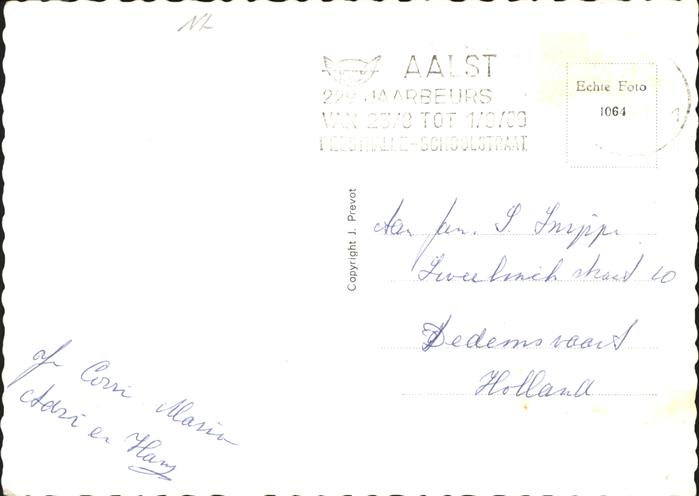 NL
AALST
22e JAARBEURS
VAN 23/8 TOT 1/9/69
FEESTHALLE-SCHOOLSTRAAT
Echte Foto
1064
Copyright J. Prevot
Aan fam. S.
10
Dedemsvaart
Holland
Corri
Adri en Hans